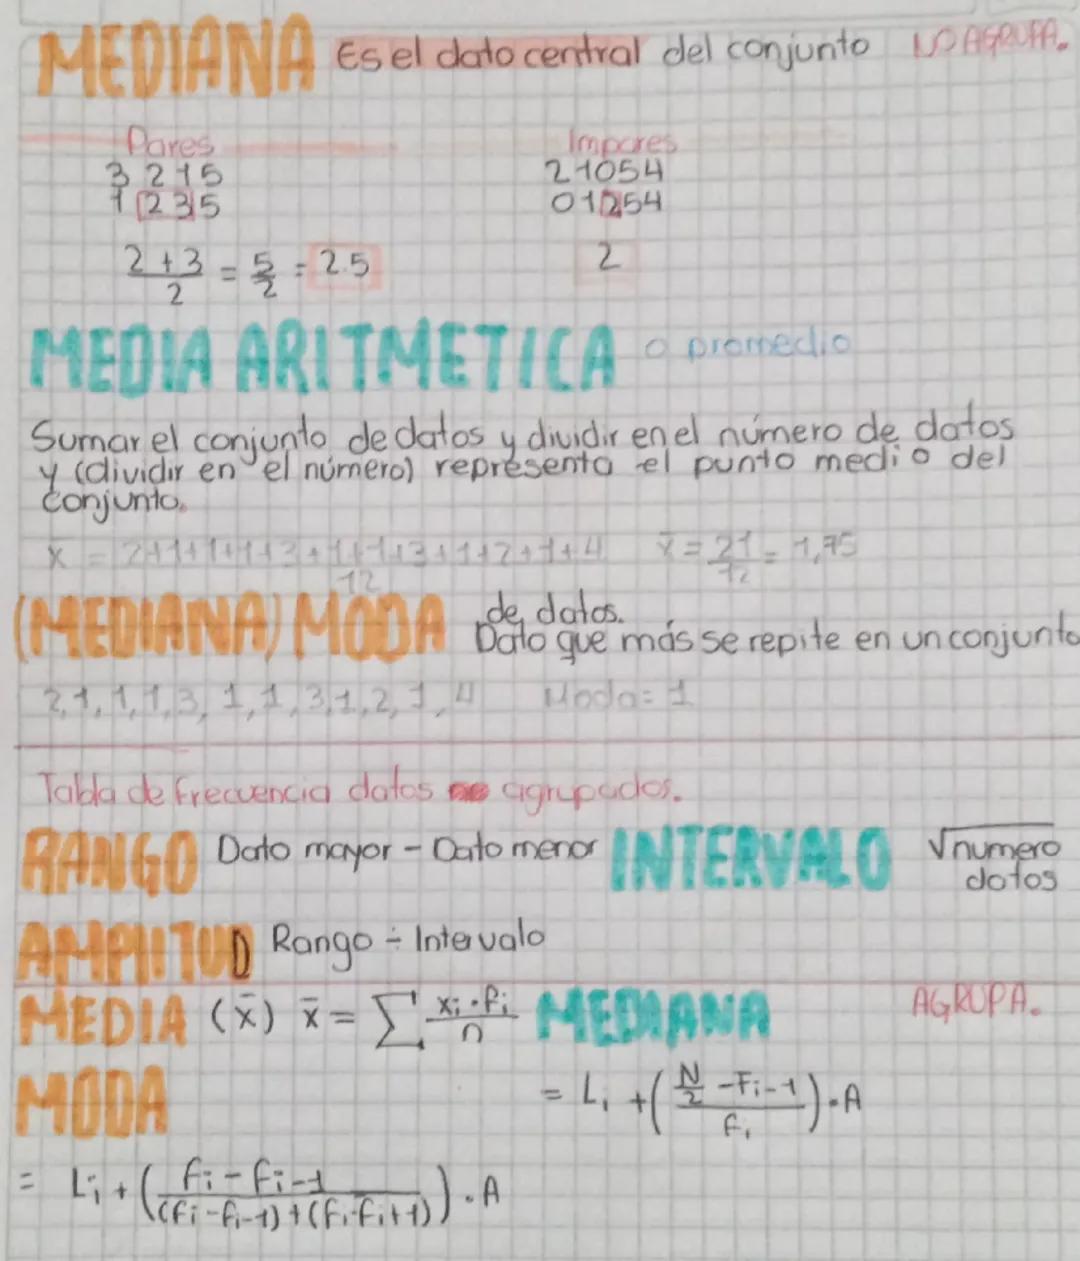 MEDIANA Es el dato central del conjunto NO AGRUPA.
Pares Impares
3 2 1 5 2 1 0 5 4
1 2 3 5 0 1 2 5 4
2 + 3 / 2 = 5/2 = 2.5 2
MEDIA ARITMETICA o promedio
Sumar el conjunto de datos y dividir en el número de datos
y (dividir en el número) representa el punto medio del
conjunto.
x̄ = 2+1+1+1+3+1+1+3+1+2+1+4 / 12 x̄ = 21/12 = 1,75
(MEDIANA) MODA de datos.
Dato que más se repite en un conjunto
2, 1, 1, 1, 3, 1, 1, 3, 1, 2, 1, 4 Moda = 1
Tabla de frecuencia datos agrupados.
RANGO Dato mayor - Dato menor INTERVALO √numero
datos
AMPLITUD Rango ÷ Intervalo
MEDIA (x̄) x̄ = Σ xi · fi / n MEDIANA AGRUPA.
= Li + (N/2 - Fi-1 / fi) · A
MODA
= Li + (fi - fi-1 / (fi - fi-1) + (fi - fi+1)) · A